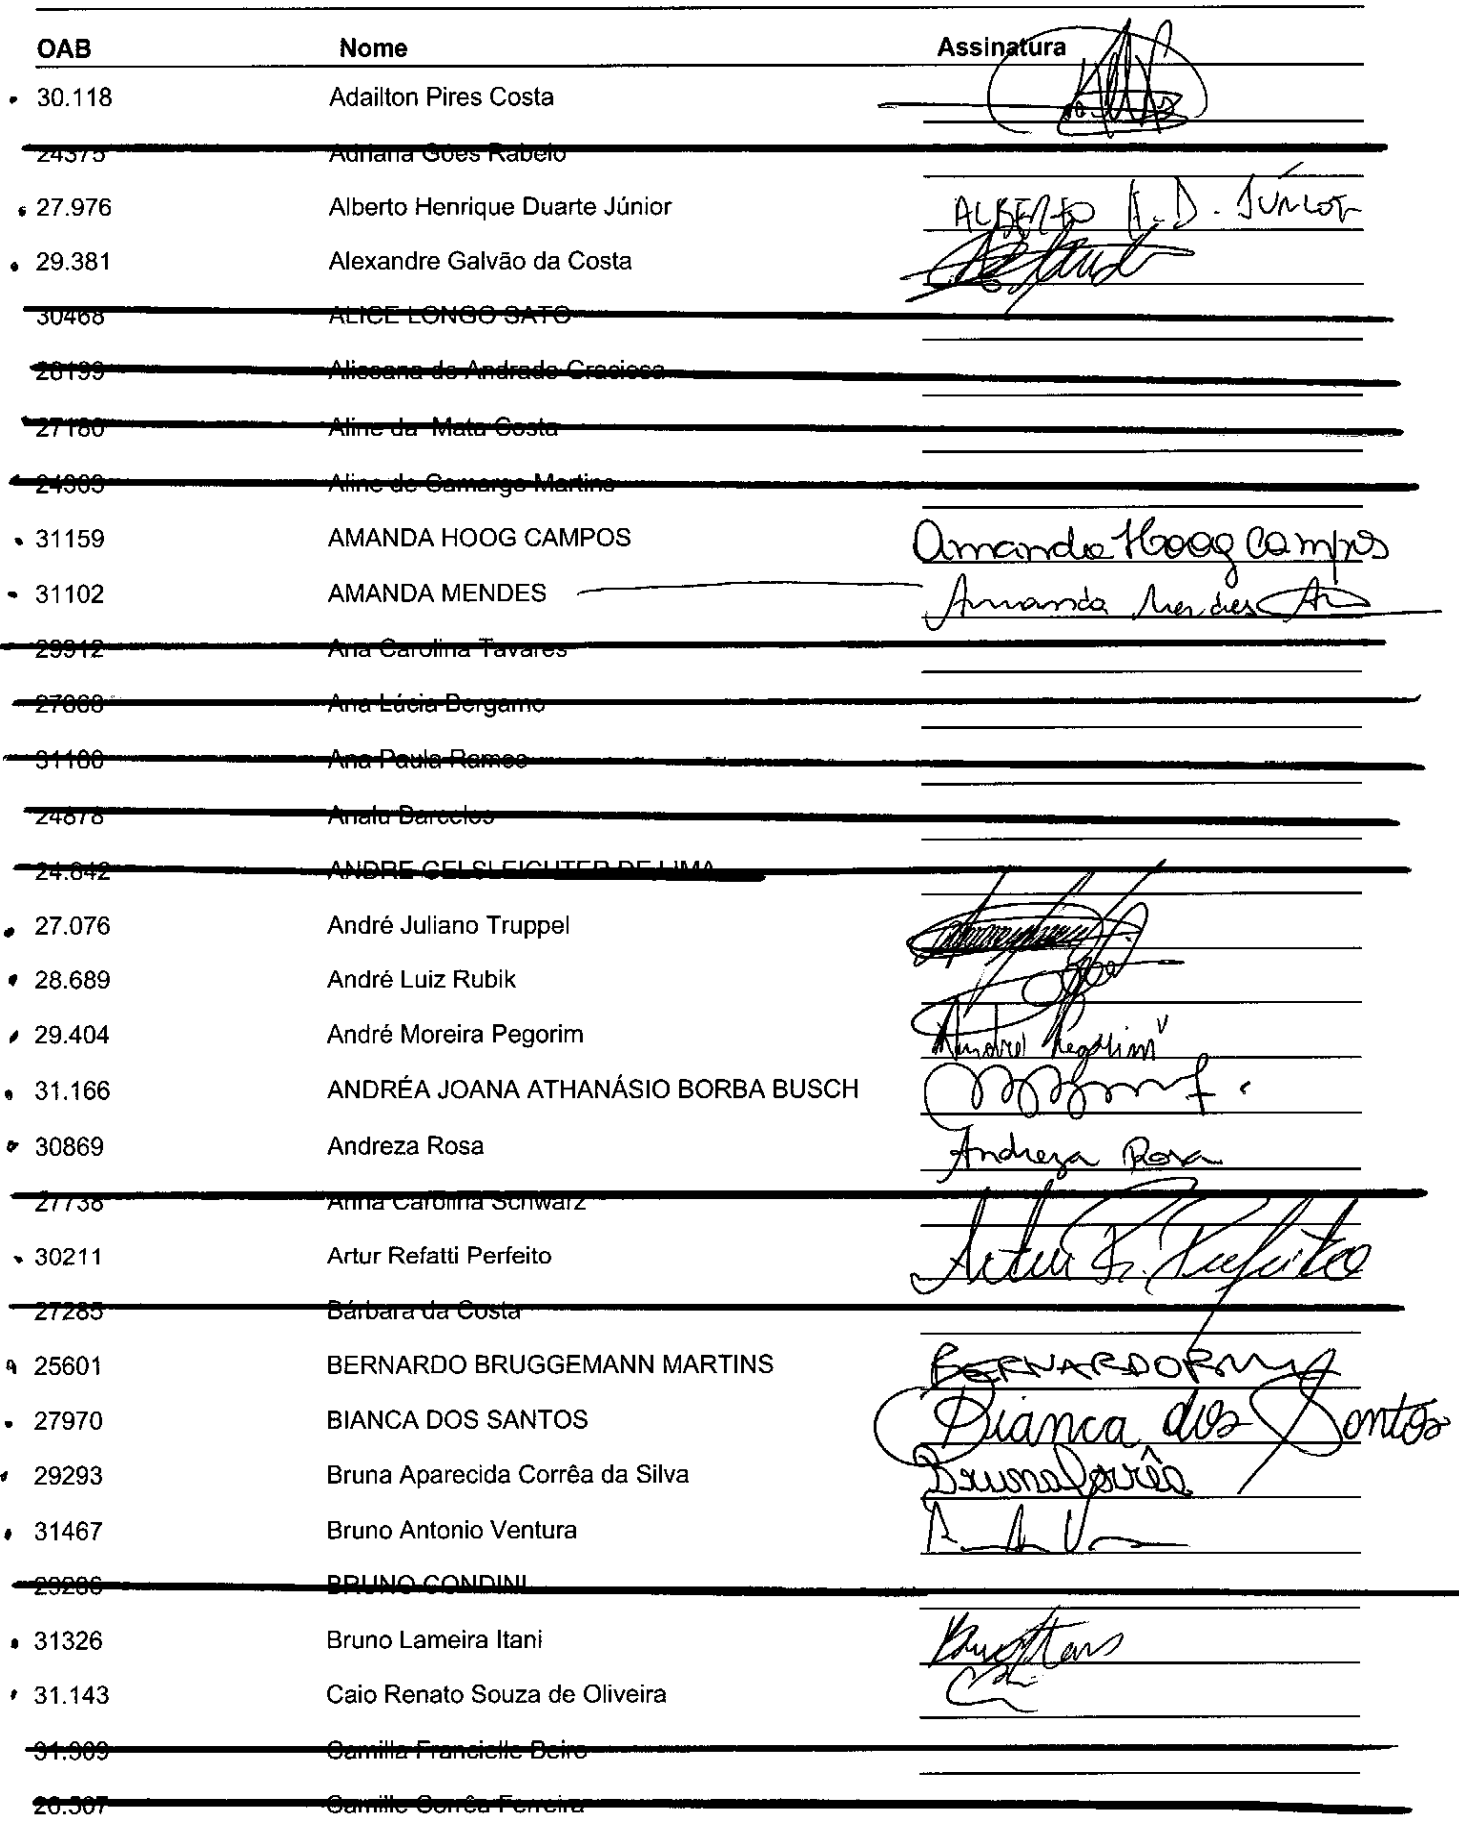 OAB Nome Assinatura
30.118 Adailton Pires Costa
24375 Adriana Góes Rabelo
27.976 Alberto Henrique Duarte Júnior ALBERTO H.D. JÚNIOR
29.381 Alexandre Galvão da Costa
30468 ALICE LONGO SATO
28199 Alissana de Andrade
27180 Aline da Mata Costa
Aline de Camargo Martins
31159 AMANDA HOOG CAMPOS Amanda Hoog Campos
31102 AMANDA MENDES Amanda Mendes
29912 Ana Carolina Tavares
Ana Lúcia Bergamo
Ana Paula Ramos
24878 Analu Barcelos
24.842 ANDRE GELSLEICHTER DE LIMA
27.076 André Juliano Truppel
28.689 André Luiz Rubik
29.404 André Moreira Pegorim André Pegorim
31.166 ANDRÉA JOANA ATHANÁSIO BORBA BUSCH
30869 Andreza Rosa Andreza Rosa
27738 Anna Carolina Schwarz
30211 Artur Refatti Perfeito Artur R. Perfeito
27285 Bárbara da Costa
25601 BERNARDO BRUGGEMANN MARTINS BERNARDO
27970 BIANCA DOS SANTOS Bianca dos Santos
29293 Bruna Aparecida Corrêa da Silva Bruna Corrêa
31467 Bruno Antonio Ventura
BRUNO CONDINI
31326 Bruno Lameira Itani
31.143 Caio Renato Souza de Oliveira
31.309 Camilla Francielle Beiro
26.507 Camille Corrêa Ferreira